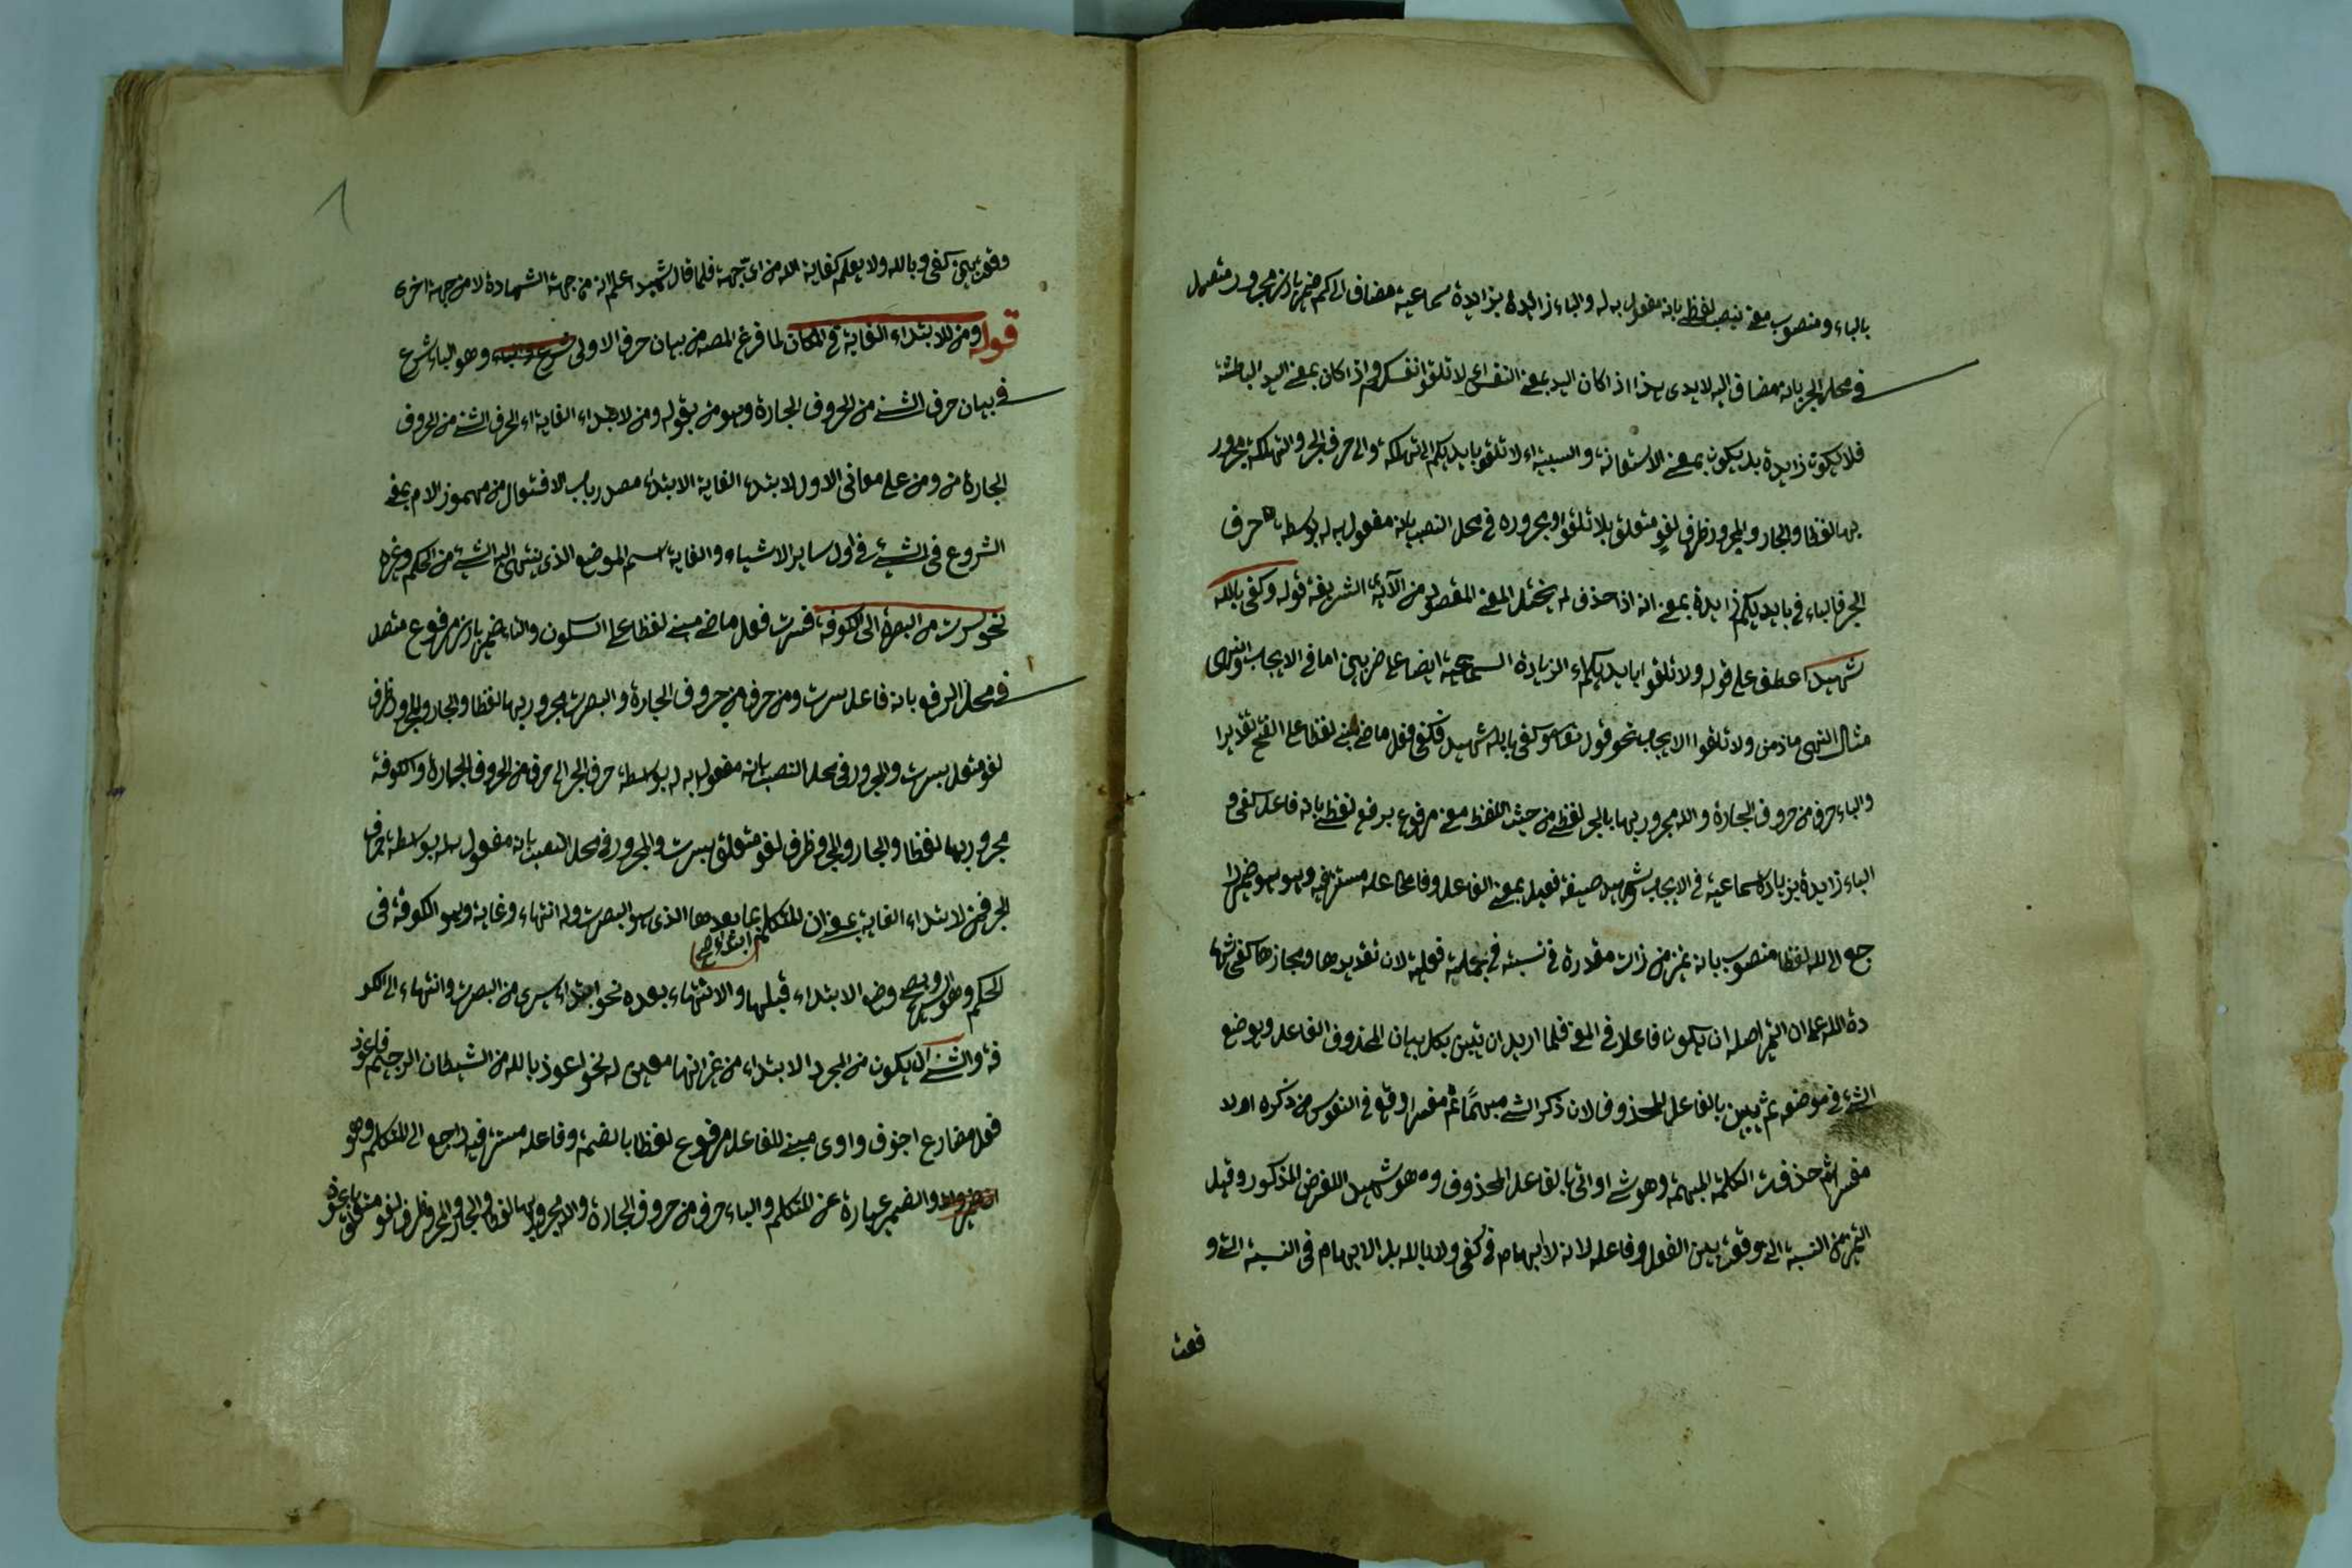 بالباء ومنصوب معنى بنصب لفظي بانه مفعول به له والباء زائدة بزايدة سماعية مضاف الى كم ضمير بارز مجرور متصل
في محل الجر بانه مضاف اليه لايدي هذا اذا كان اليد بمعنى النفس اي لا تلقوا انفسكم واذا كان بمعنى اليد الباطشة
فلا يكون زايدة بل يكون بمعنى الاستعانة والسببية اى لا تلقوا بايديكم الى التهلكة والى حرف الجر والتهلكة مجرور
بها لفظا والجار والمجرور ظرف لغو متعلق بلا تلقوا ومجروره في محل النصب بانه مفعول به له بوسطة حرف
الجر فالباء في بايديكم زايدة بمعنى انه اذا حذف لم يختل المعنى المقصود من الآية الشريفة قوله وكفى بالله
شهيدا عطف على قوله ولا تلقوا بايديكم اى الزيادة السماعية ايضا على ضربين اما في الايجاب والنهى
مثال النهى مادمن ولا تلقوا الايجاب نحو قول تعالى وكفى بالله شهيد فكفى فعل ماضى مبنى لفظا على الفتح تقديرا
والباء حرف من حروف الجارة والله مجرور بها بالجر لفظى من حيث اللفظ معنى مرفوع برفع لفظى بانه فاعل كفى و
الباء زايدة بزيادة سماعية في الايجاب شهيد صيغة فعيل بمعنى الفاعل وفاعله مستتر فيه وهو هو ضمير را
جع الى الله لفظا منصوب بانه تمييز من ذات مقدرة في نسبته في جملية فعلية لان تقديرها ومجازها كفى شها
دة الله على ان التمييز اصله ان يكون فاعلا في المعنى فلما اريد ان تبين بكل بيان المحذوف الفاعل ويوضع
الشيء في موضعه ثم يبين بالفاعل المحذوف لان ذكر الشيء مبهما ثم مفسرا وقع في النفوس من ذكره اولا
مفسرا ثم حذفت الكلمة المبهمة وهو شيء اواتى بالفاعل المحذوف وهو شهيد اللغرض المذكور وقيل
التمييز من النسبة التي وقعت بين الفعل وفاعله لانه لا ابهام في كفى ولا بالله بل الابهام في النسبة التي و
قعت
وقعت بين كفى وبالله ولا يعلم كفاية الله من اى جهة فلما قال شهيد اعلم انه من جهة الشهادة لا من جهة اخرى
قوله ومن للابتداء الغاية في المكان لما فرغ المصه من بيان حرف الاولى وهو الباء شرع
في بيان حرف الثنى من الحروف الجارة وهو من بقوله ومن لابتداء الغاية اى الحرف الثنى من الحروف
الجارة من ومن على معانى الاول لابتداء الغاية الابتداء مصدر باب الافتعال من مهموز الام بمعنى
الشروع في الشيء في اول ساير الاشياء والغاية اسم الموضع الذى ينتهى اليه الشيء من الحكم وغيره
نحو سرت من البصرة الى الكوفة فسرت فعل ماضى مبنى لفظا على السكون والتاء ضمير بارز مرفوع متصل
في محل الرفع بانه فاعل سرت ومن حرف من حروف الجارة والبصرت مجرور بها لفظا والجار والمجرور ظرف
لغو متعلق بسرت والمجرور في محل النصب بانه مفعول به له بوسطة حرف الجر الى حرف من الحروف الجارة والكوفة
مجرور بها لفظا والجار والمجرور ظرف لغو متعلق بسرت والمجرور في محل النصب بانه مفعول به له بوسطة حرف
الجر فمن لابتداء الغاية بمعنى ان للمتكلم بما بعدها الذى هو البصرت وله انتهاء وغاية وهو الكوفة في
ابتداء صح
الحكم وهو السير وضع الابتداء قبلها والانتهاء بعده نحو ابتداء سيرى من البصرت وانتهاء الى الكو
فة والثنى ان يكون من المجرد الابتداء من غير انتها معين له نحو اعوذ بالله من الشيطان الرجيم فاعوذ
فعل مضارع اجوف واوى مبنى للفاعل مرفوع لفظا بالضمة وفاعله مستتر فيه راجع الى المتكلم وهو
والضمير عبارة عن المتكلم والباء حرف من حروف الجارة والله مجرور بها لفظا والجار والمجرور ظرف لغو متعلق باعوذ